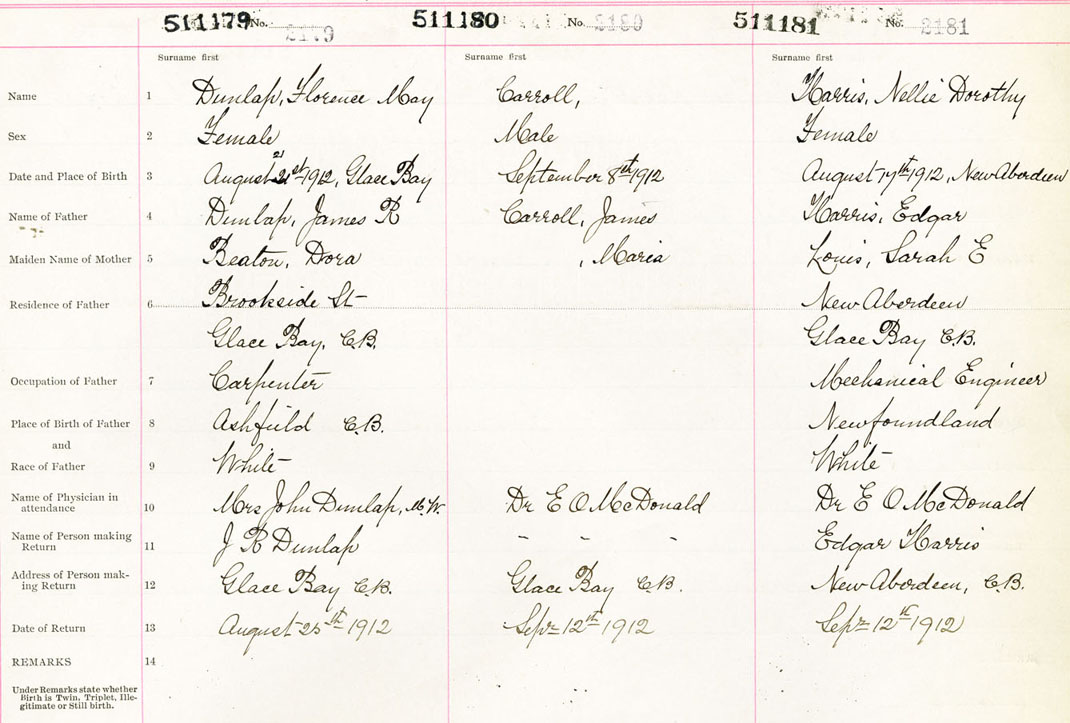 511179 No. 2179 511180 No. 2180 511181 No. 2181
Surname first Surname first Surname first
Name 1 Dunlap, Florence May Carroll, Harris, Nellie Dorothy
Sex 2 Female Male Female
21
Date and Place of Birth 3 August 21st 1912, Glace Bay September 8th 1912 August 17th 1912, New Aberdeen
Name of Father 4 Dunlap, James R Carroll, James Harris, Edgar
Maiden Name of Mother 5 Beaton, Dora , Maria Louis, Sarah E
Residence of Father 6 Brookside St New Aberdeen
Glace Bay, C.B. Glace Bay C.B.
Occupation of Father 7 Carpenter Mechanical Engineer
Place of Birth of Father 8 Ashfield C.B. Newfoundland
and
Race of Father 9 White White
Name of Physician in
attendance 10 Mrs John Dunlap, M.W. Dr E O McDonald Dr E O McDonald
Name of Person making
Return 11 J R Dunlap - - - Edgar Harris
Address of Person mak-
ing Return 12 Glace Bay C.B. Glace Bay C.B. New Aberdeen, C.B.
Date of Return 13 August 25th 1912 Sepr 12th 1912 Sepr 12th 1912
REMARKS 14
Under Remarks state whether
Birth is Twin, Triplet, Ille-
gitimate or Still birth.